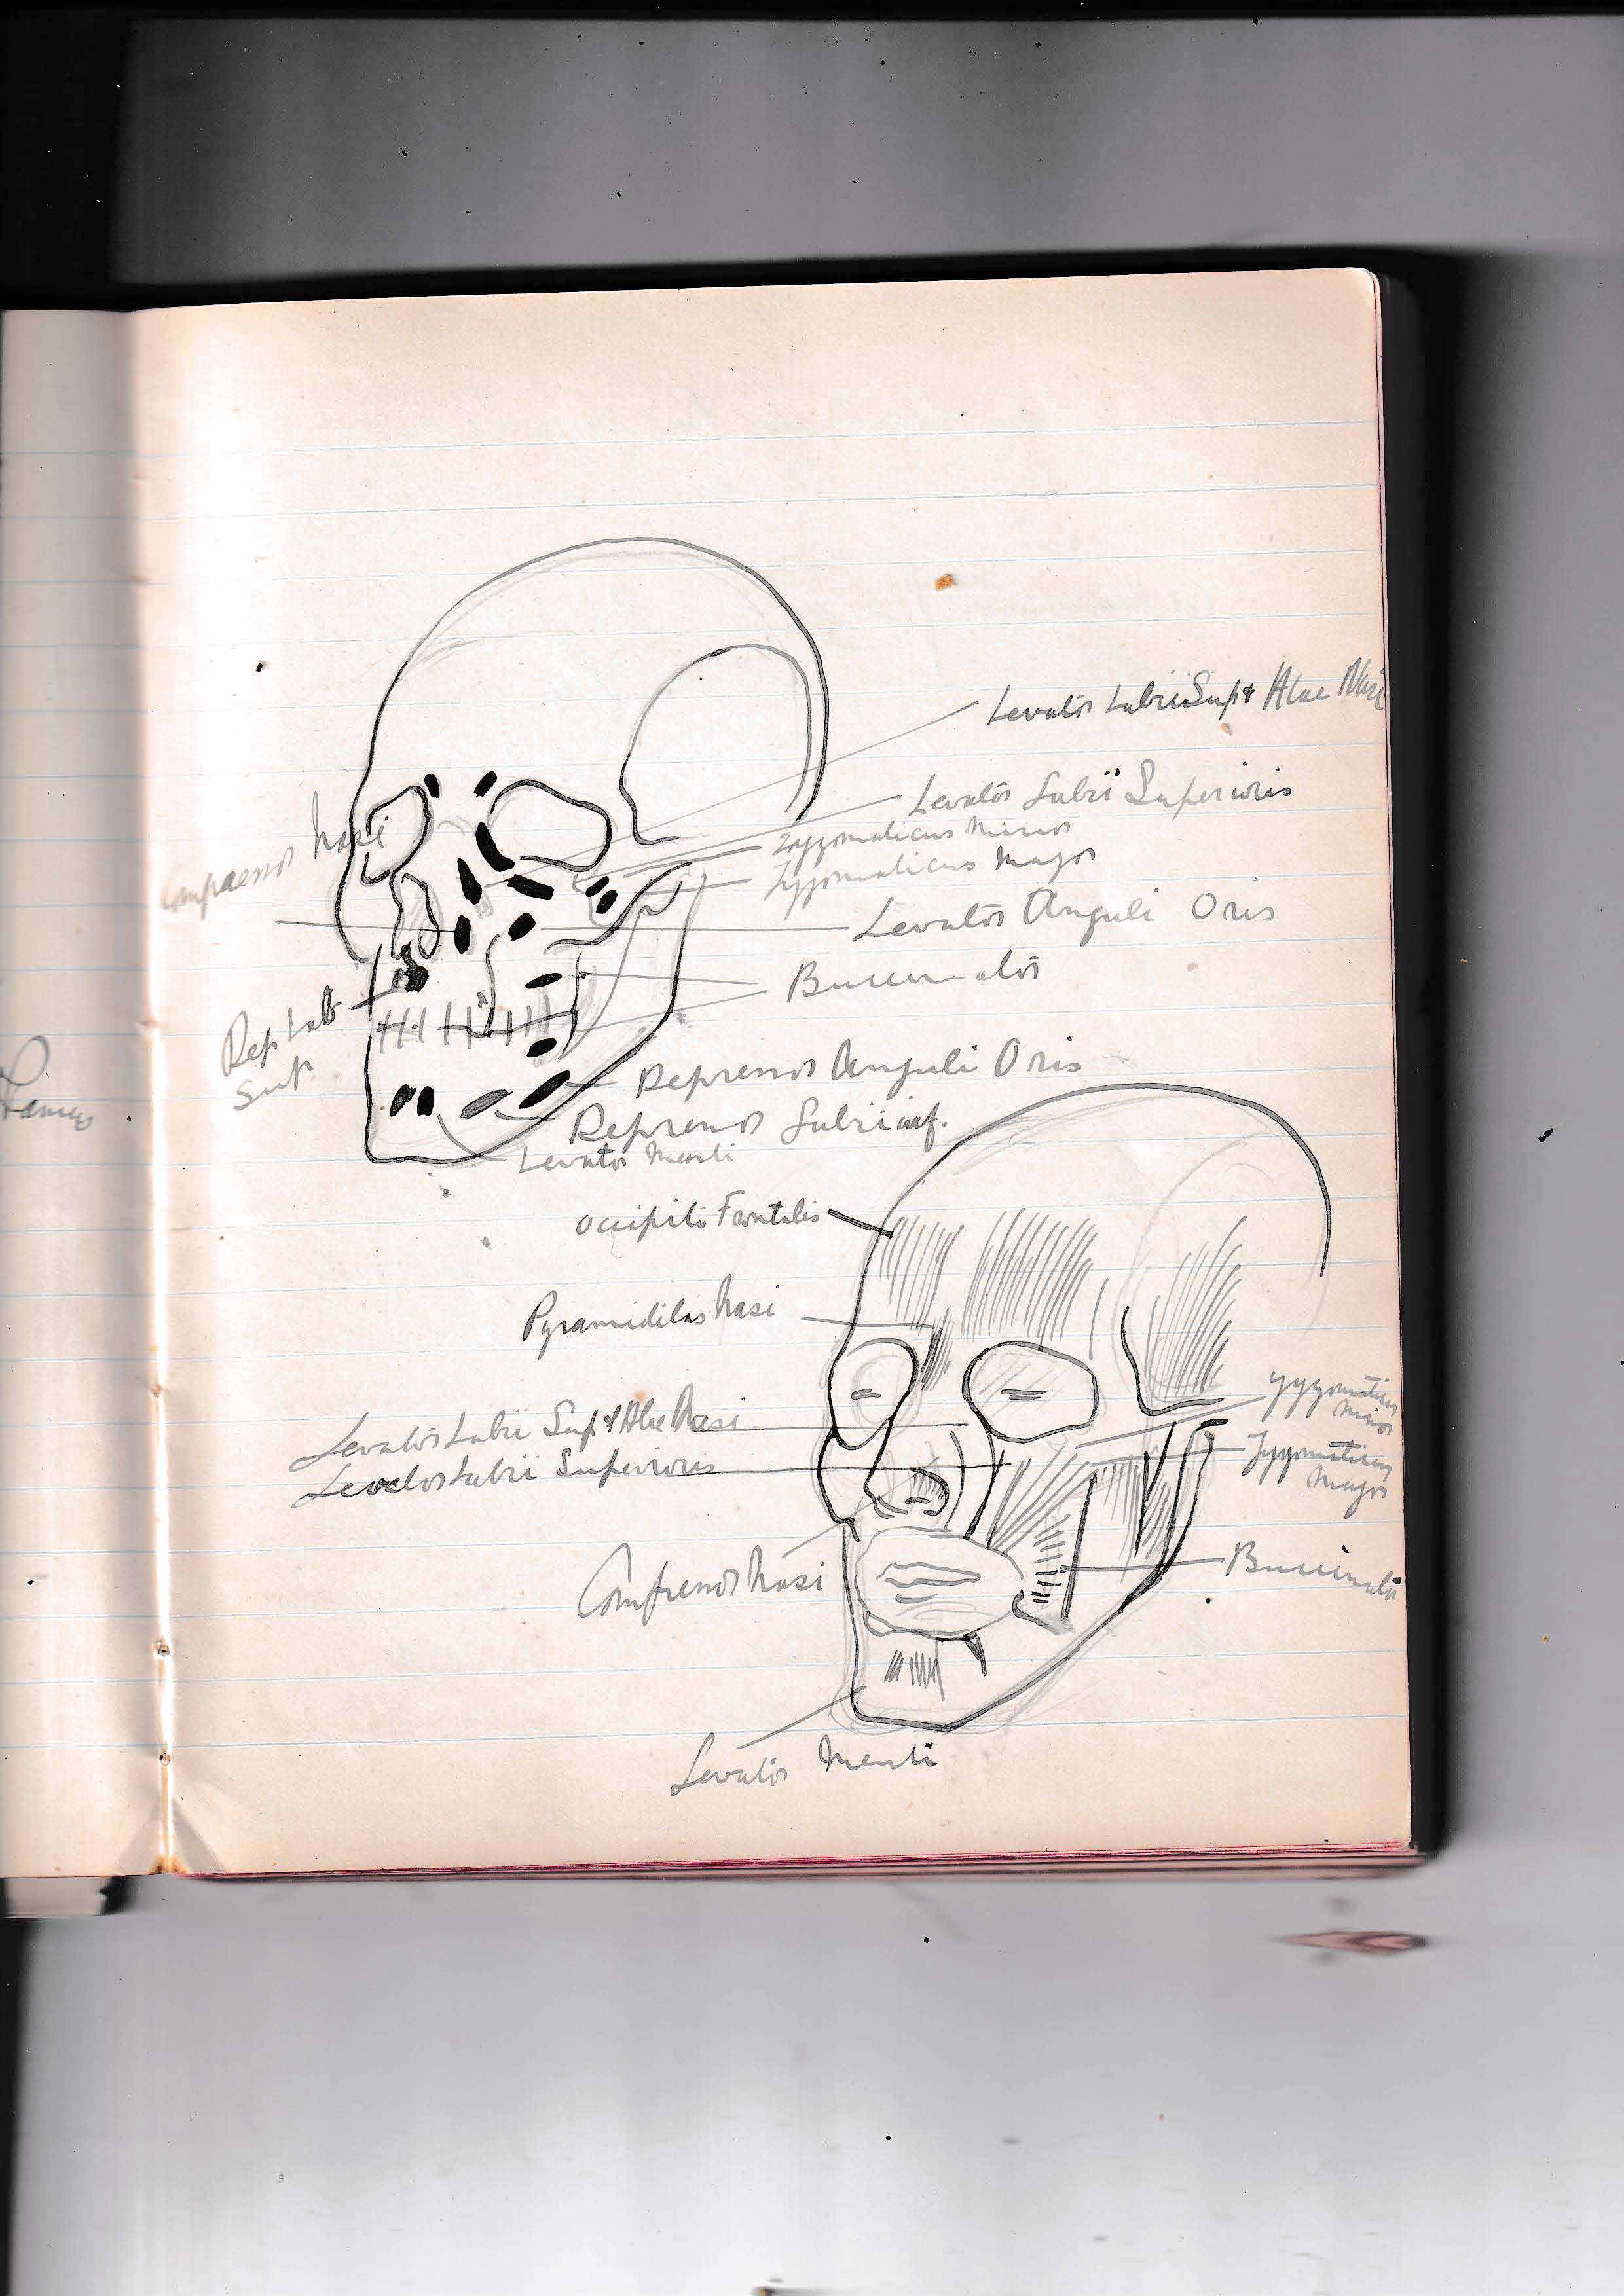 Levator Labii Sup & Alae Nasi
Levator Labii Superioris
Zygomaticus Minor
Compressor Nasi
Zygomaticus Major
Levator Anguli Oris
Buccinator
Dep Lab
Sup
Depressor Anguli Oris
Depressor Labii inf.
Levator Menti
Occipito Frontalis
Pyramidilas Nasi
Zygomaticus
Minor
Levator Labii Sup & Alae Nasi
Levator Labii Superioris
Zygomaticus
Major
Compressor Nasi
Buccinator
Levator Menti